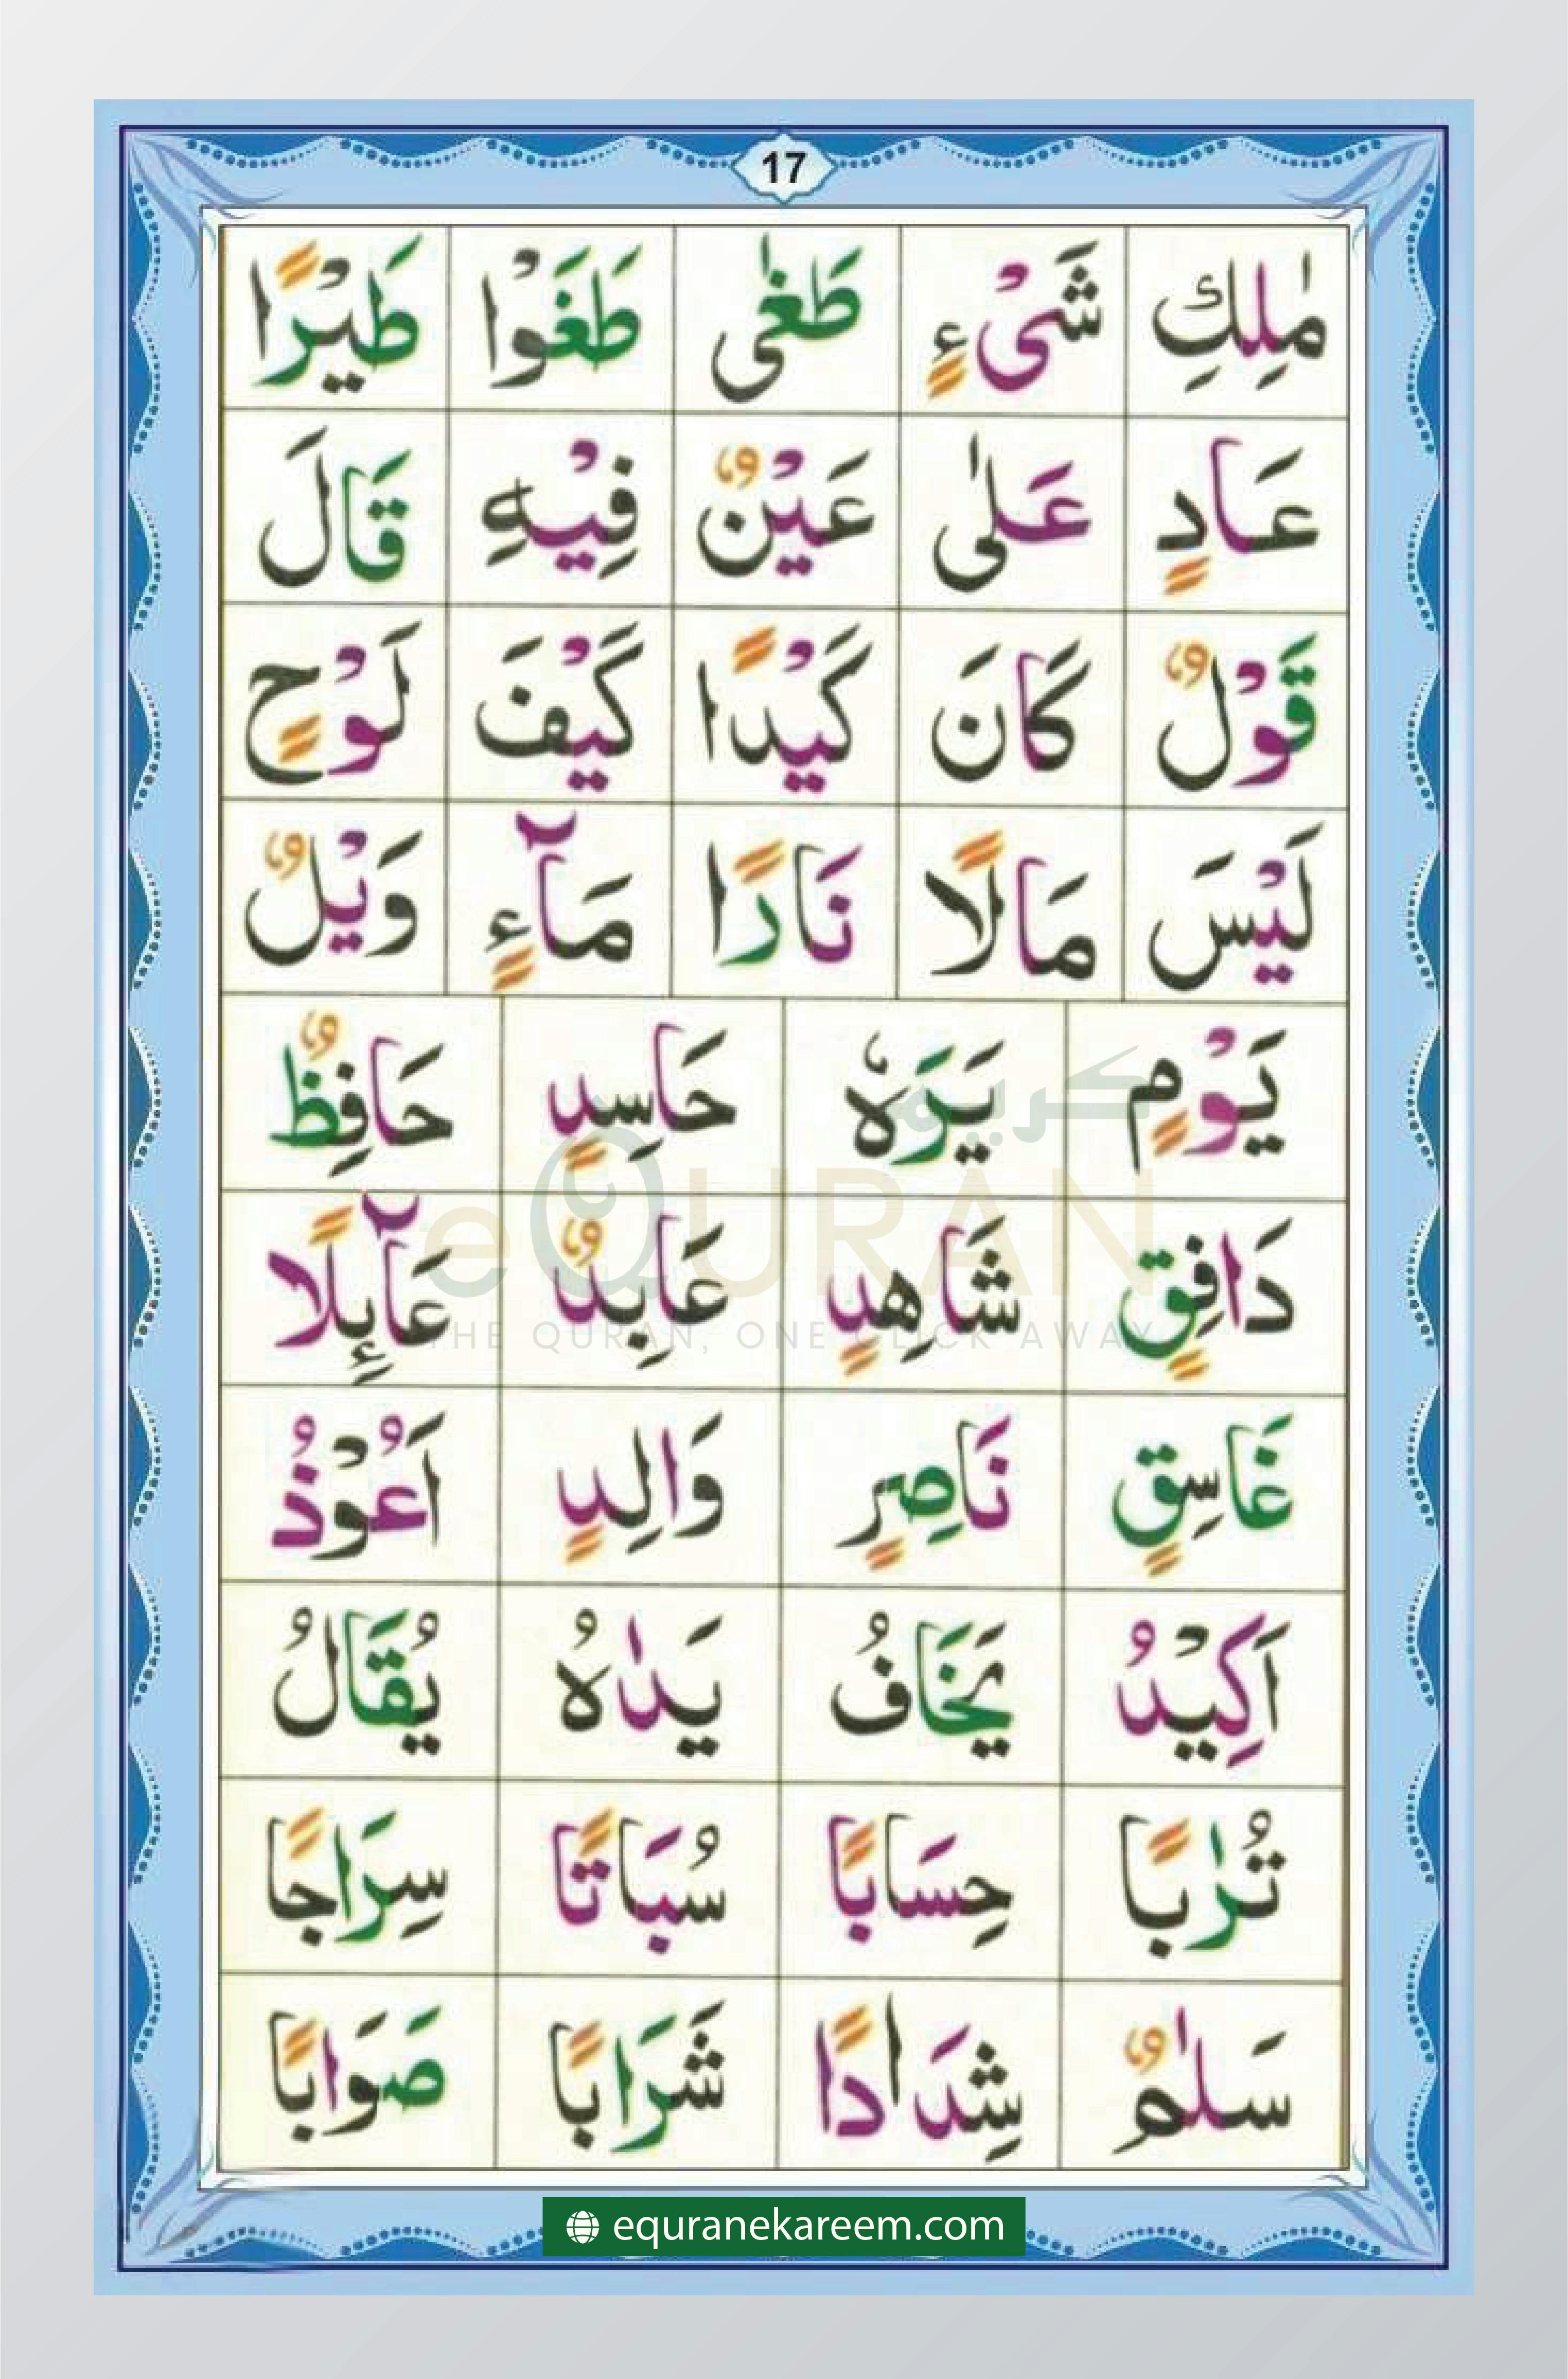 17
مٰلِكِ شَیْءٍ طَغٰی طَغَوْا طَيْرًا
عَادٍ عَلٰی عَيْنٌ فِيْهِ قَالَ
قَوْلٌ كَانَ كَيْدًا كَيْفَ لَوْحٍ
لَيْسَ مَالًا نَارًا مَآءٍ وَيْلٌ
يَوْمٍ يَرَهٗ حَاسِدٍ حَافِظٌ
دَافِقٍ شَاهِدٍ عَابِدٌ عَآئِلًا
غَاسِقٍ نَاصِرٍ وَالِدٍ اَعُوْذُ
اَكِيْدُ يَخَافُ يَدٰهُ يُقَالُ
تُرٰبًا حِسَابًا سُبَاتًا سِرَاجًا
سَلٰمٌ شِدَادًا شَرَابًا صَوَابًا
كريم
eQURAN
THE QURAN, ONE CLICK AWAY
equranekareem.com